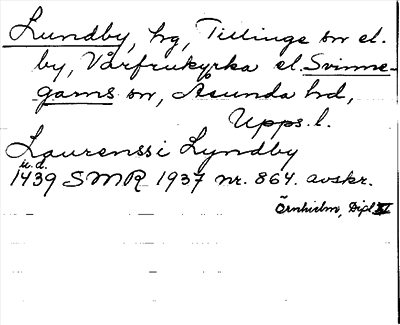 Lundby, hg, Tillinge sn el.
by, Vårfrukyrka el. Svinne-
garns sn, Åsunda hd,
Upps. l.
Laurenssi Lyndby
u.d.
1439 SMR 1937 nr. 864. avskr.
Örnhielm, Dipl. IV